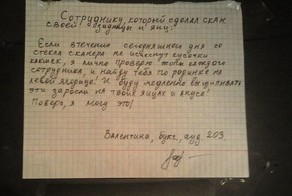 Сотруднику, который сделал скан
своей задницы и яиц!
Если втечении сегодняшнего дня со
стекла сканера не исчезнут кусочки
какашек, я лично проверю жопы каждого
сотрудника, и найду тебя по родинке на
левой ягодице! И буду медленно выщипывать
эти заросли на твоих яйцах и анусе!
Поверь, я могу это!
Валентина, бухг., ауд 203